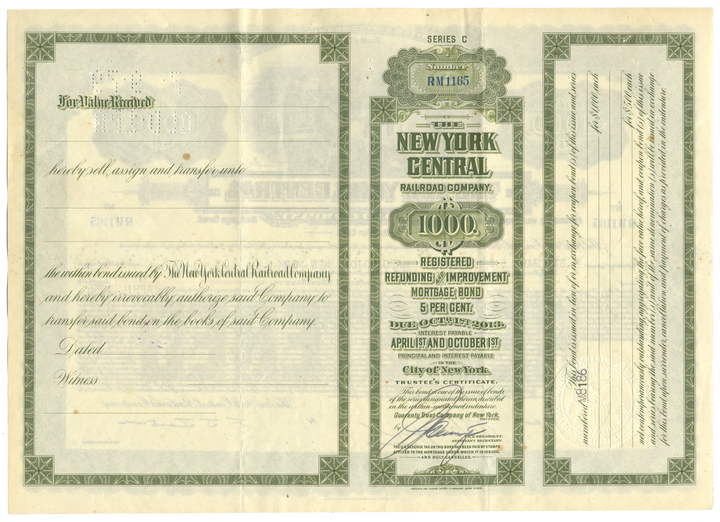 For Value Received
hereby sell, assign and transfer unto
the within bond issued by The New York Central Railroad Company
and hereby irrevocably authorize said Company to
transfer said bond on the books of said Company.
Dated
Witness
SERIES C
Number
RM1165
THE
NEW YORK
CENTRAL
RAILROAD COMPANY.
$1000.
REGISTERED
REFUNDING AND IMPROVEMENT
MORTGAGE BOND
5 PER CENT.
DUE OCT. 1ST, 2013.
INTEREST PAYABLE
APRIL 1ST AND OCTOBER 1ST
PRINCIPAL AND INTEREST PAYABLE
IN THE
City of New York.
TRUSTEE'S CERTIFICATE.
This bond is one of the issue of bonds
of the series designated therein, described
in the within-mentioned indenture.
Guaranty Trust Company of New York,
TRUSTEE,
By
VICE PRESIDENT.
ASSISTANT SECRETARY.
This bond is issued in lieu of or in exchange for coupon bond(s) of this issue and series
numbered M8186 for $1,000 each
for $500 each
not contemporaneously outstanding, aggregating the face value hereof and coupon bond(s) of this issue
and series bearing the said number(s) and of the same denomination(s) will be issued in exchange
for this bond upon surrender, cancellation and payment of charges as provided in the indenture.